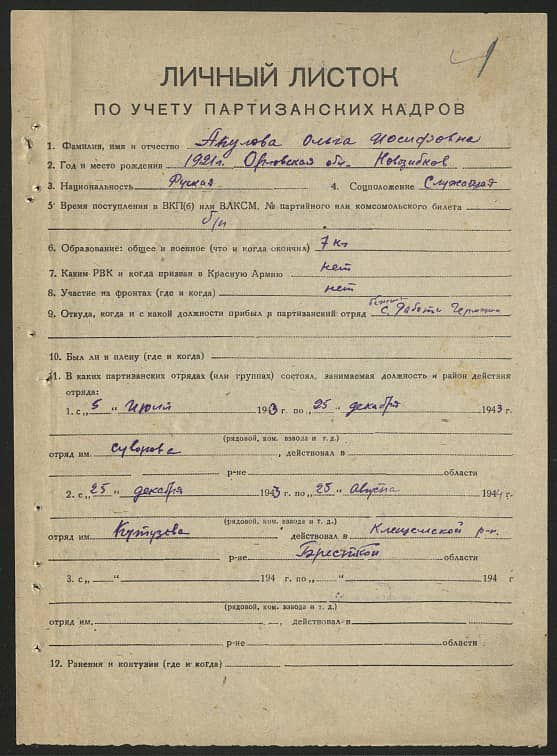 1
ЛИЧНЫЙ ЛИСТОК
ПО УЧЕТУ ПАРТИЗАНСКИХ КАДРОВ
1. Фамилия, имя и отчество Акулова Ольга Иосифовна
2. Год и место рождения 1921г. Орловская обл. Новозибков
3. Национальность Руская 4. Соцположение Служащая
5 Время поступления в ВКП(б) или ВЛКСМ, № партийного или комсомольского билета
б/п
6. Образование: общее и военное (что и когда окончил) 7 кл
7. Каким РВК и когда призван в Красную Армию нет
8. Участие на фронтах (где и когда) нет
9. Откуда, когда и с какой должности прибыл в партизанский отряд с работы
10. Был ли в плену (где и когда)
11. В каких партизанских отрядах (или группах) состоял, занимаемая должность и район действия
отряда:
1. с „5 “ Июня 1943 г. по „25 “ декабря 1943 г.
(рядовой, ком. взвода и т. д.)
отряд им. Суворова , действовал в
р-не области
2. с „25 “ декабря 1943 г. по „25 “ Августа 1944 г.
(рядовой, ком. взвода и т. д.)
отряд им. Кутузова действовал в р-н.
р-не Брестской области
3. с „ “ 194 г. по „ “ 194 г
(рядовой, ком. взвода и т. д.)
отряд им. , действовал в
р-не области
12. Ранения и контузии (где и когда)